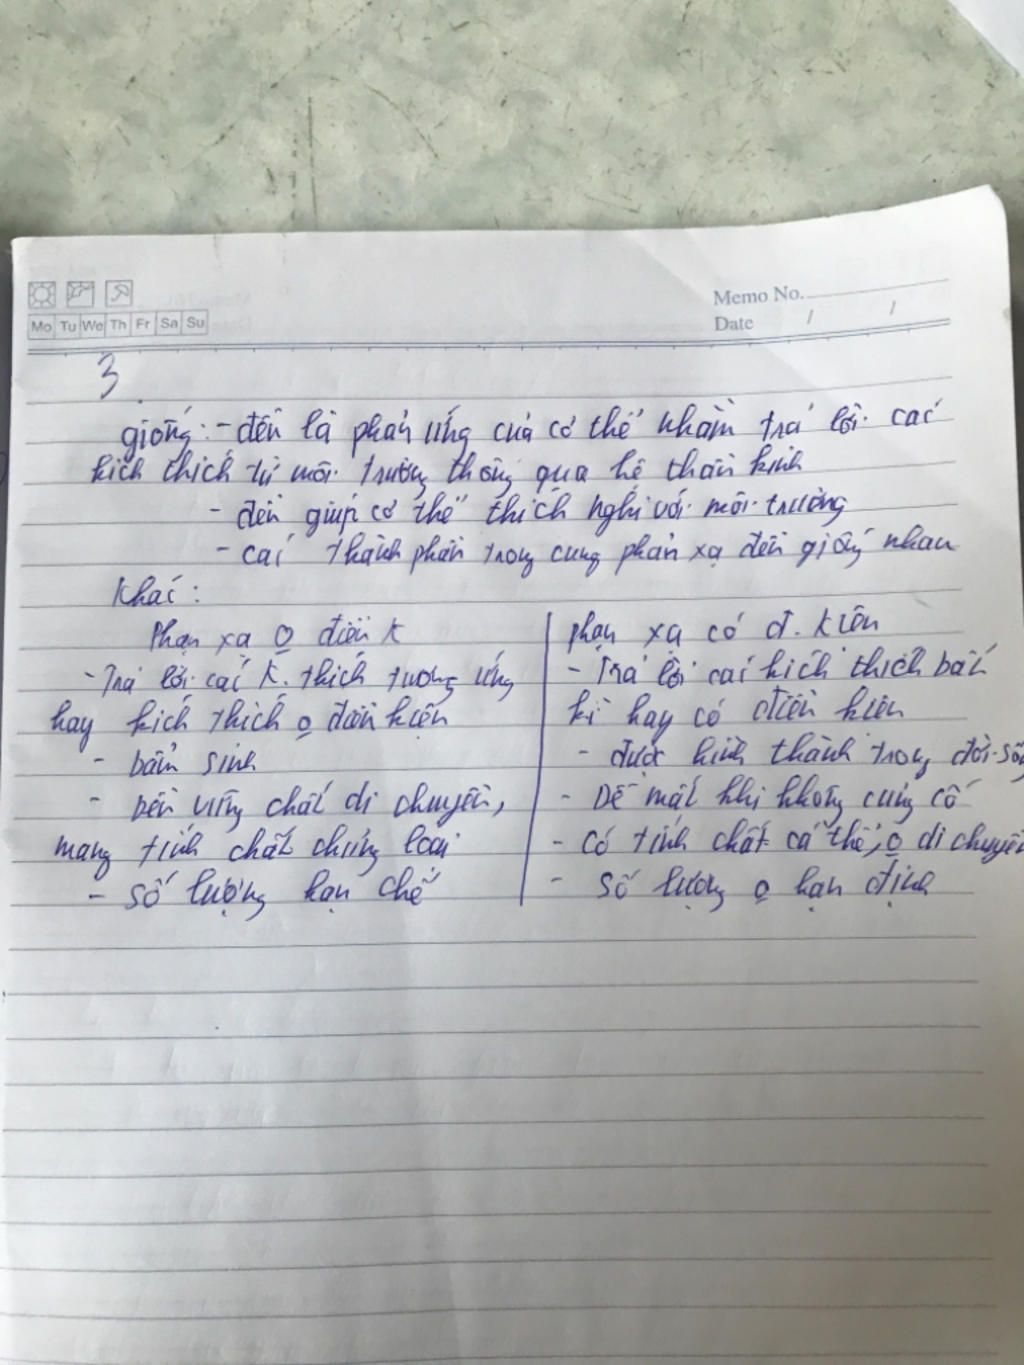 Memo No.
Mo Tu We Th Fr Sa Su
Date / /
3.
giống: - đều là phản ứng của cơ thể nhằm trả lời các
kích thích từ môi trường thông qua hệ thần kinh
- đều giúp cơ thể thích nghi với môi trường
- các thành phần trong cung phản xạ đều giống nhau
Khác:
Phản xạ o điều K
- Trả lời các K. thích tương ứng
hay kích thích o điều kiện
- bẩm sinh
- bền vững chất di chuyền,
mang tính chất chủng loại
- số lượng hạn chế
phản xạ có đ. kiện
- Trả lời các kích thích bất
kì hay có điều kiện
- được hình thành trong đời sống
- Dễ mất khi không củng cố
- Có tính chất cá thể, o di chuyền
- số lượng o hạn định